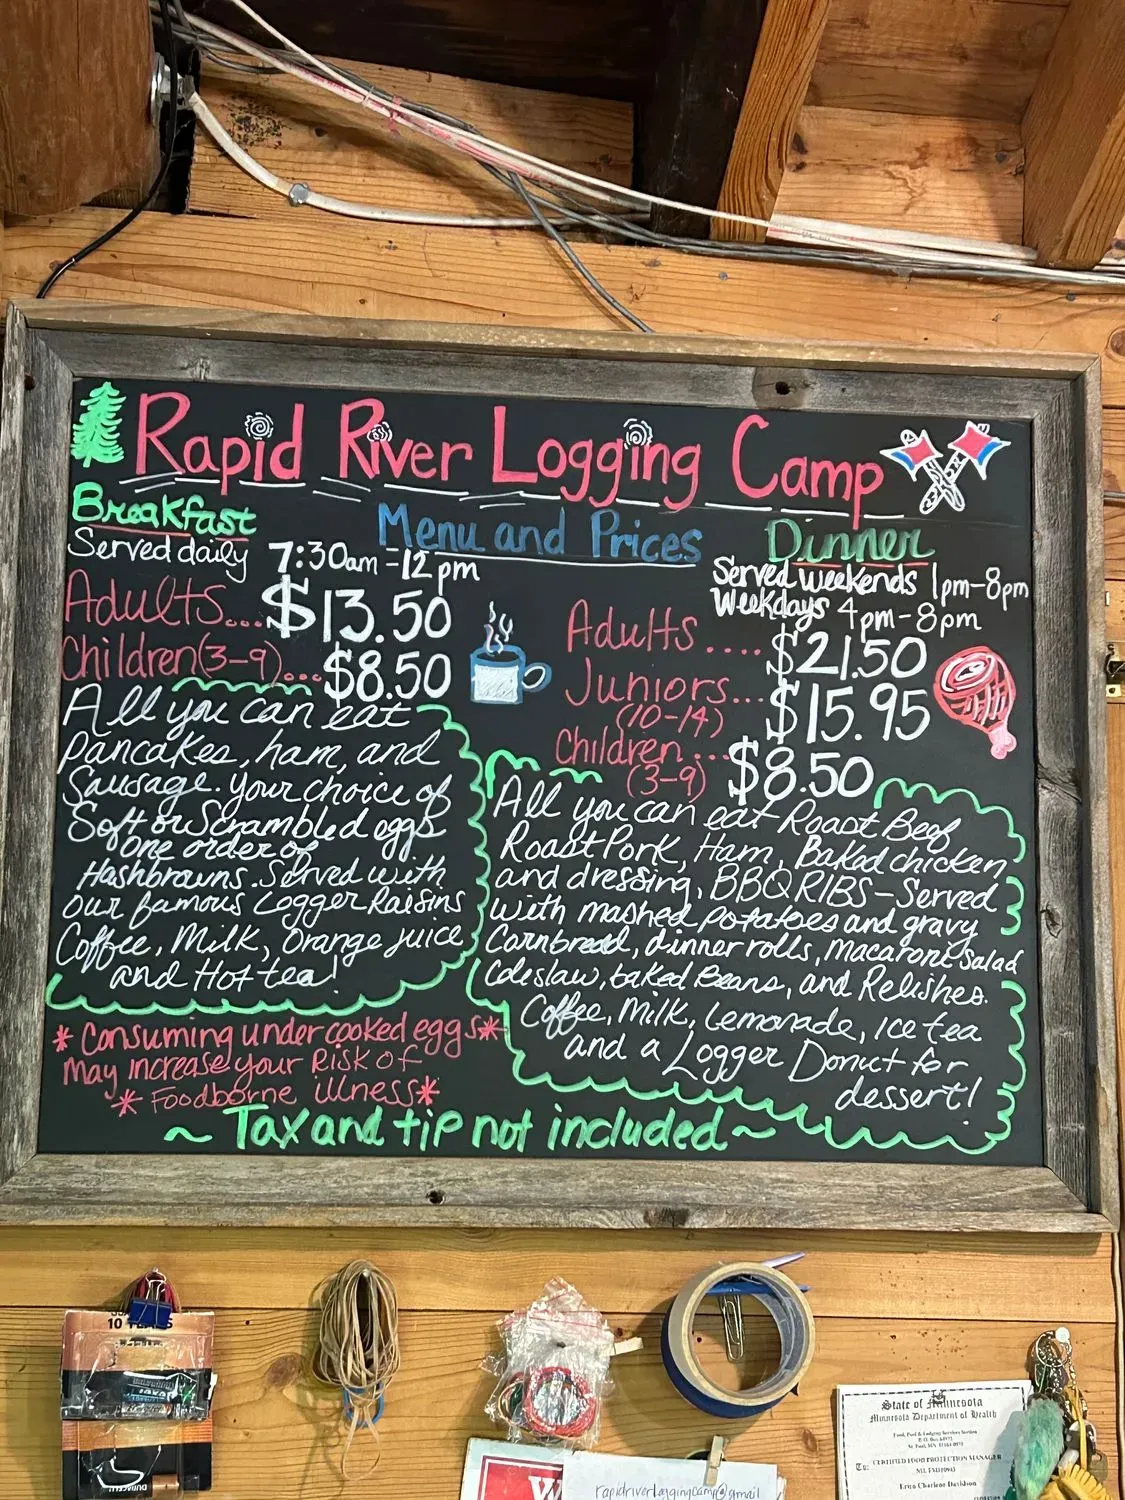 Rapid River Logging Camp
Menu and Prices
Breakfast
Served daily 7:30am-12pm
Adults... $13.50
Children (3-9)... $8.50
All you can eat
pancakes, ham, and
Sausage. your choice of
Soft or Scrambled eggs
one order of
Hashbrowns. Served with
our famous Logger Raisins
Coffee, Milk, Orange juice,
and Hot tea!
* Consuming undercooked eggs *
May increase your Risk of
* Foodborne illness *
Dinner
Served weekends 1pm-8pm
Weekdays 4pm-8pm
Adults .... $21.50
Juniors... $15.95
(10-14)
Children ... $8.50
(3-9)
All you can eat Roast Beef
Roast Pork, Ham, Baked chicken
and dressing, BBQ RIBS - Served
with mashed potatoes and gravy
Cornbread, dinner rolls, macaroni Salad
Coleslaw, baked Beans, and Relishes.
Coffee, Milk, Lemonade, ice tea
and a Logger Donut for
dessert!
~ Tax and tip not included ~
10 YEARS
DURACELL
W
rapidriverloggingcamp@gmail
State of Minnesota
Minnesota Department of Health
Food, Pool & Lodging Services Section
To: CERTIFIED FOOD PROTECTION MANAGER
Erica Charlene Davidson